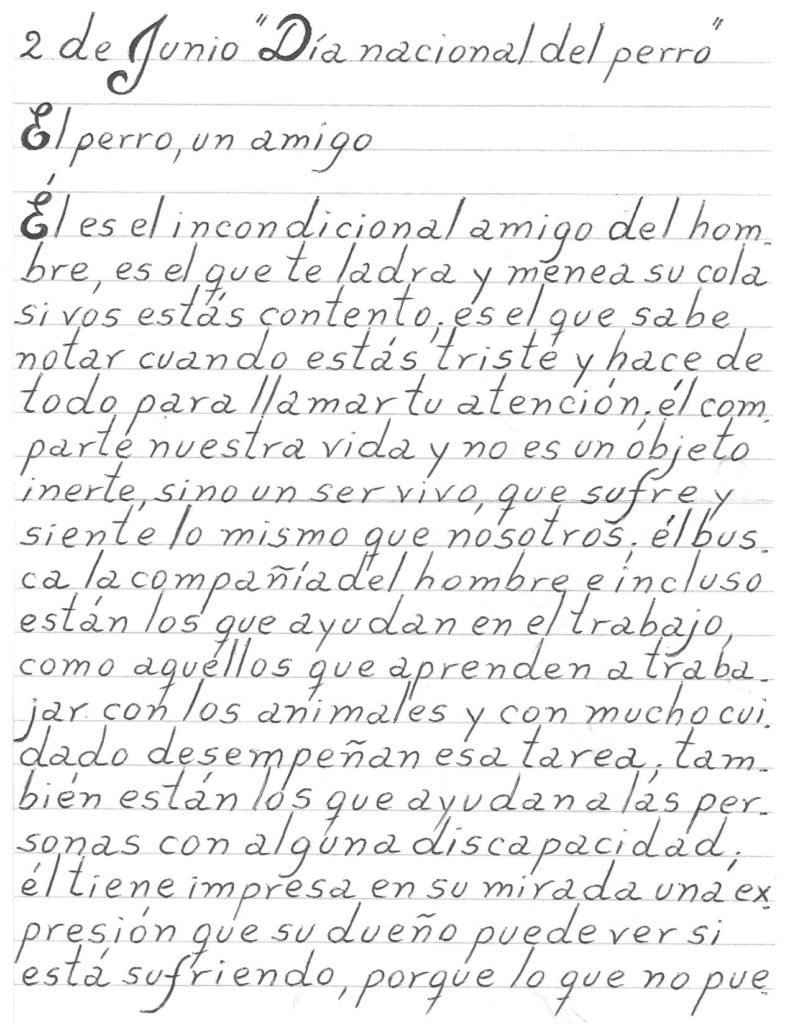 2 de Junio "Día nacional del perro"
El perro, un amigo
Él es el incondicional amigo del hom-
bre, es el que te ladra y menea su cola
si vos estás contento; es el que sabe
notar cuando estás triste y hace de
todo para llamar tu atención; él com-
parte nuestra vida y no es un objeto
inerte, sino un ser vivo, que sufre y
siente lo mismo que nosotros; él bus-
ca la compañía del hombre e incluso
están los que ayudan en el trabajo,
como aquéllos que aprenden a traba-
jar con los animales y con mucho cui-
dado desempeñan esa tarea; tam-
bién están los que ayudan a las per-
sonas con alguna discapacidad;
él tiene impresa en su mirada una ex-
presión que su dueño puede ver si
está sufriendo, porque lo que no pue-